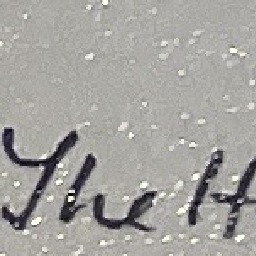 The H